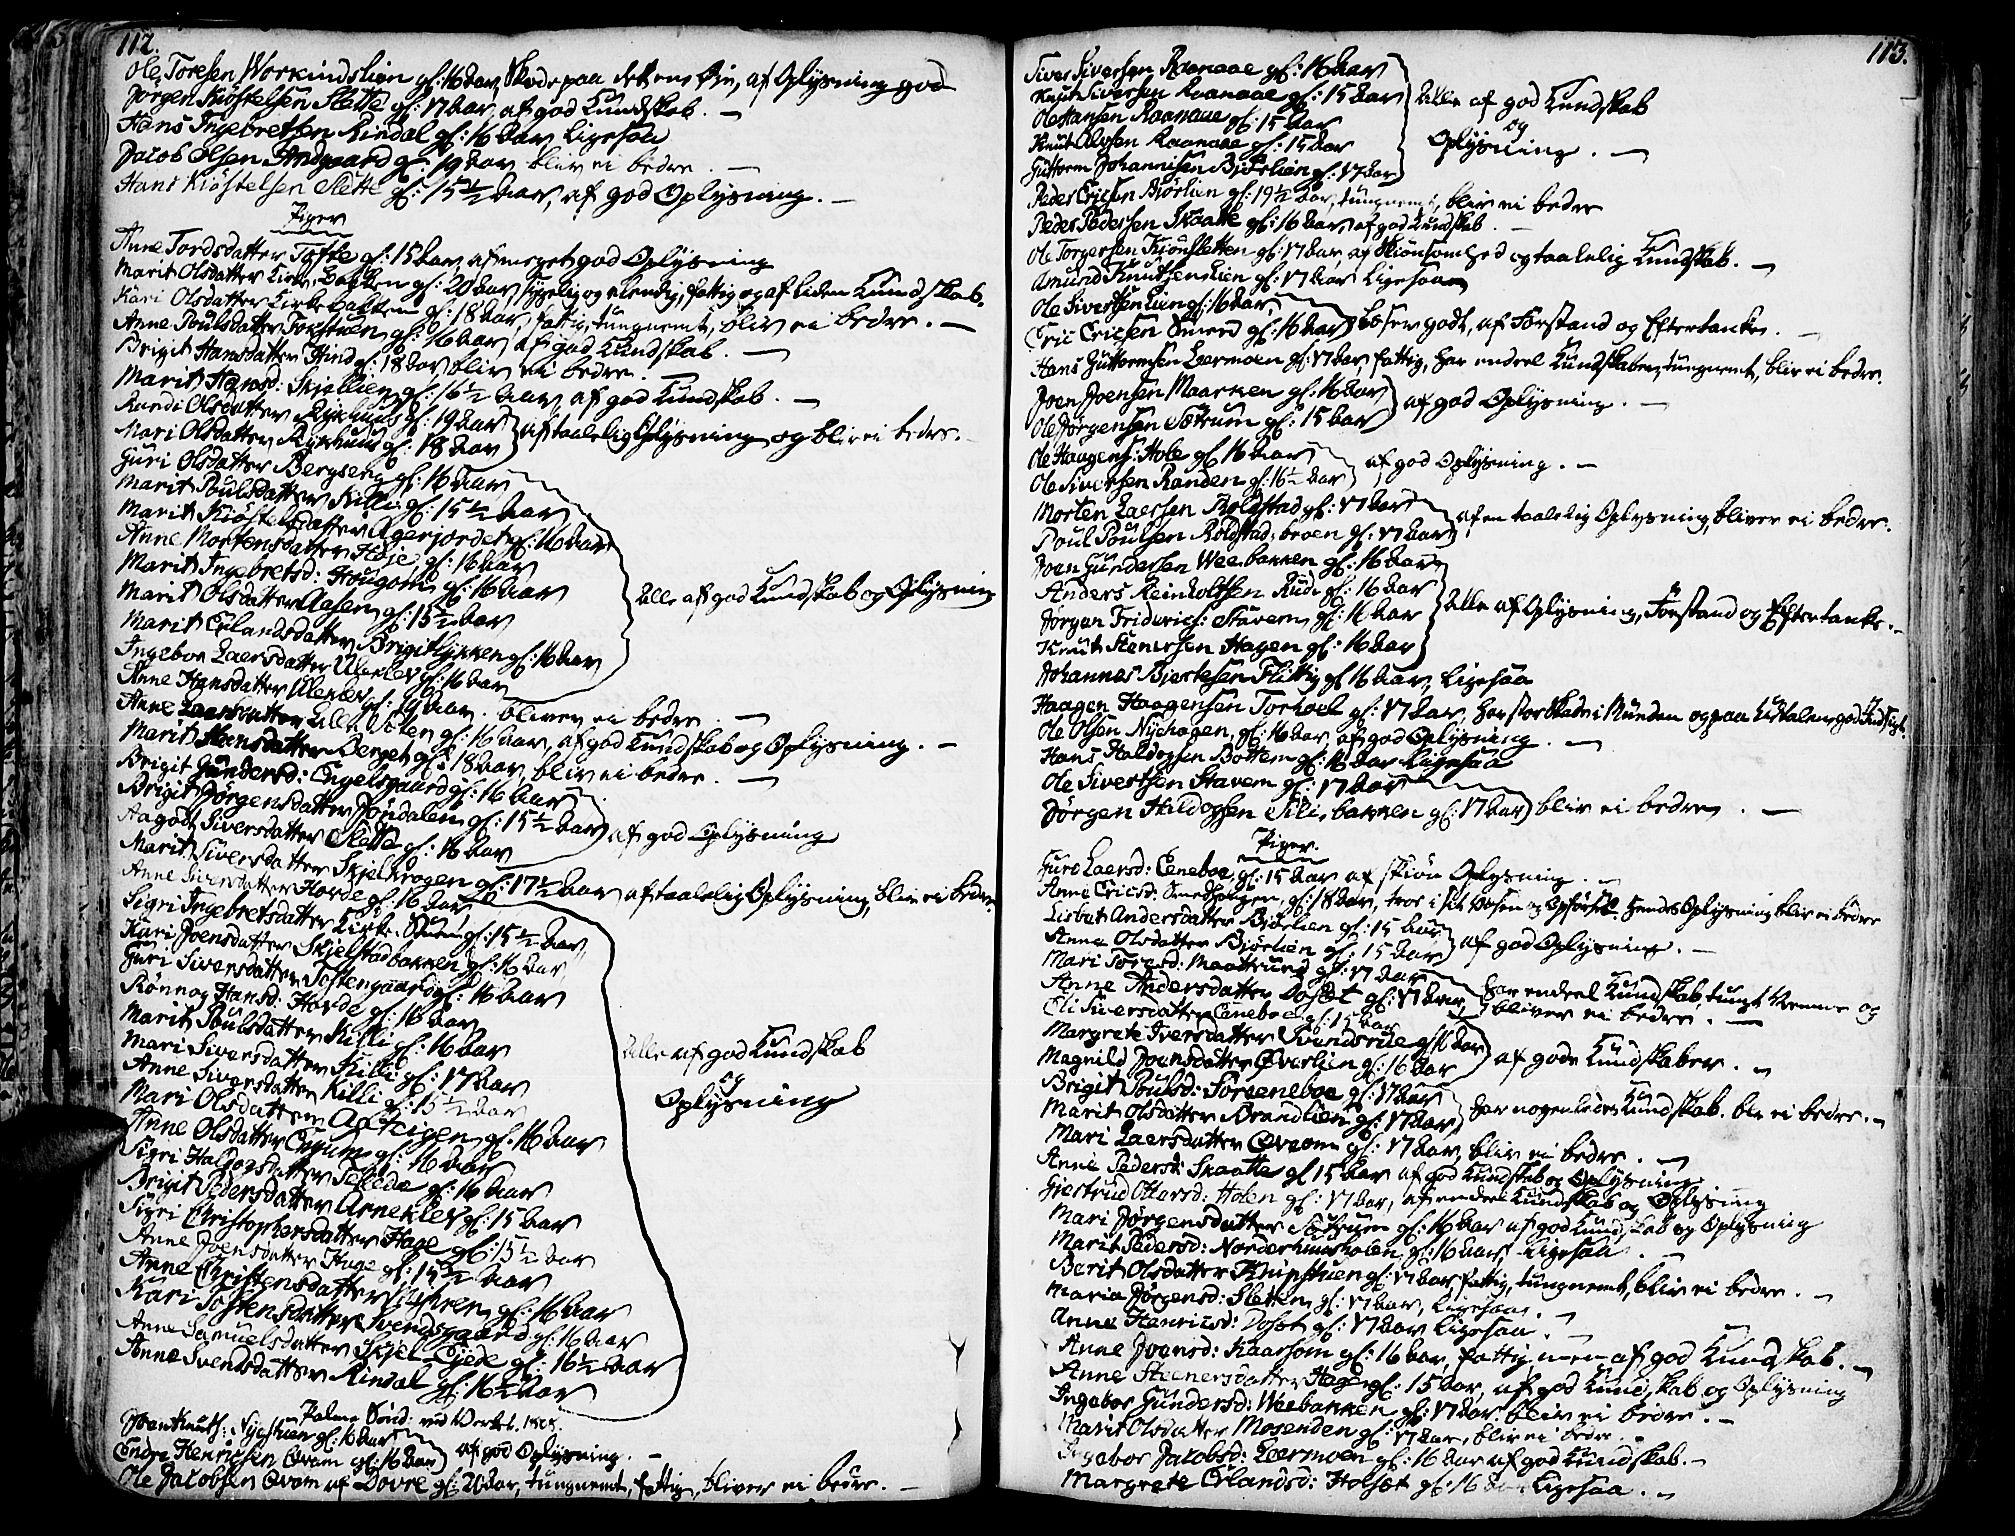 112.
Ole Toresen Workindslien gl: 16 Aar, Skade paa det ene Øie, af Oplysning god
Jørgen Kiøstelsen Slette gl: 17 Aar, af god Kundskab. —
Hans Ingebretsen Rindal gl: 16 Aar, ligesaa
Jacob Olsen Andgaard gl: 19 Aar bliv ei bedre. —
Hans Kiøstelsen Slette gl: 15½ Aar, af god Oplysning. —
Piger
Anne Tordsdatter Tofte gl: 15 Aar, af meget god Oplysning
Marit Olsdatter Kirke Bakken gl: 20 Aar, sygelig og elendig, fattig og af liden Kundskab.
Kari Olsdatter Kirkebakken gl: 18 Aar, fattig, tungnemt, bliv ei bedre. —
Anne Poulsdatter gl: 16 Aar af god Kundskab. —
Brigit Hansdatter Hind gl: 18 Aar bliv ei bedre. —
Marit Hansd: Skjellien gl: 16½ Aar, af god Kundskab. —
Randi Olsdatter Ryshuus gl: 19 Aar
Mari Olsdatter Ryshuus gl: 18 Aar af taalelig Oplysning og bliv ei bedre.
Guri Olsdatter Bergseng gl: 16 Aar
Marit Poulsdatter Killi gl: 15½ Aar
Marit Kiøstelsdatter Agerjordet gl: 16 Aar
Anne Mortensdatter Høje gl: 16 Aar
Marit Ingebretsd: Hougom gl: 16 Aar
Marit Olsdatter Aasen gl: 15½ Aar
Alle af god Kundskab og Oplysning
Marit Erlandsdatter Brigitløkken gl: 16 Aar
Ingebor Laersdatter Uleklev gl: 16 Aar
Anne Hansdatter Uleklev gl: 19 Aar, bliver ei bedre. —
Anne Laersdatter Lille gl: 16 Aar, af god Kundskab og Oplysning. —
Marit Steensdatter Berget gl: 18 Aar, bliv ei bedre. —
Brigit Gundersd: Engelsgaard gl: 16 Aar
Brigit Jørgensdatter Jøndalen gl: 15½ Aar
Aagodt Siversdatter Slette gl: 16 Aar af god Oplysning
Marit Siversdatter Skjelkrogen gl: 17½ Aar af taalelig Oplysning, bliv ei bedre.
Anne Siversdatter Horde gl: 16 Aar
Sigri Ingebretsdatter Kirke gl: 15½ Aar
Kari Joensdatter Skjelstadbakken gl: 16 Aar
Guri Siversdatter Tostengaard gl: 16 Aar
Rønnog Hansd: Horde gl: 16 Aar
Marit Poulsdatter Killi gl: 16 Aar
Mari Siversdatter Killi gl: 17 Aar
Alle af god Kundskab
og
Oplysning
Anne Siversdatter Killi gl: 15½ Aar
Mari Olsdatter gl: 16 Aar
Anne Olsdatter gl: 16 Aar
Sigri Haldogsdatter gl: 16 Aar
Brigit Pedersdatter Arneklev gl: 15 Aar
Sigri Christophersdatter Hage gl: 15½ Aar
Anne Joensdatter Hage gl: 15½ Aar
Anne Christensdatter gl: 16 Aar
Kari Tostensdatter Svendsgaard gl: 16 Aar
Anne Samuelsdatter gl: 16½ Aar
Anne Svendsdatter Rindal gl: 16½ Aar
Palme Sønd: ved Værket.
Knuts: gl: 16 Aar
Endre Henricsen Qvam gl: 16 Aar af god Oplysning. —
Ole Jacobsen Qvam af Dovre gl: 20 Aar, tungnemt, fattig, bliver ei bedre. —
113.
Siver Siversen Raanaae gl: 16 Aar
Knut Siversen Raanaae gl: 15 Aar
Ole Hansen Raanaae gl: 15 Aar
Knut Olesen Raanaae gl: 15 Aar
Guttorm Johannisen Bjørlien gl: 17 Aar
Alle af god Kundskab
og
Oplysning. —
Peder Ericsen Biørlien gl: 19½ Aar, tungnemt, bliv ei bedre
Peder Pedersen Skaatte gl: 16 Aar, af god Kundskab. —
Ole Torgersen gl: 17 Aar af Skiønsomhed og taalelig Kundskab. —
Amund Knutsen Lien gl: 17 Aar ligesaa
Ole Siversen Lien gl: 16 Aar,
Eric Ericsen gl: 16 Aar læser godt, af Forstand og Eftertanke.
Hans Guttormsen Loermoen gl: 17 Aar, fattig, har endeel Kundskaber, tungnemt, bliv ei bedre.
Joen Joensen Maarken gl: 16 Aar
Ole Jørgensen Sotrum gl: 15 Aar af god Oplysning. —
Ole Haagens: Hole gl: 16 Aar
Ole Siversen Randen gl: 16½ Aar af god Oplysning. —
Morten Laersen Roldstad gl: 17 Aar
Poul Poulsen Roldstad broen gl: 17 Aar af en taalelig Oplysning, bliver ei bedre.
Joen Gundersen Weebakken gl: 16 Aar
Anders Reinholtsen Rude gl: 16 Aar
Jørgen Friderics: Stavem gl: 16 Aar
Knut Stenersen Hagen gl: 16 Aar
Alle af Oplysning, Forstand og Eftertanke. —
Johannes Bjertesen Flittig gl 16 Aar, ligesaa
Haagen Haagensen gl: 17 Aar, har stor Skade i Munden og paa, god Indsigt.
Ole Olsen Nyehagen, gl: 16 Aar af god Oplysning. —
Hans Haldogsen Bottem gl: 16 Aar ligesaa
Ole Sivertsen Stavem gl: 17 Aar
Jørgen Haldogsen bakken gl: 17 Aar bliv ei bedre. —
Piger.
Guro Laersd: Eneboe, gl: 15 Aar af skiøn Oplysning. —
Anne Ericsd: Smedhaugen, gl: 18 Aar, tros i sit Væsen og Opførsel. Hendes Oplysning bliv ei bedre
Lisbet Andersdatter Biørlien gl: 15 Aar
Anne Olsdatter Biørlien gl: 15 Aar af god Oplysning. —
Mari Toresd: gl: 17 Aar
Anne Andersdatter Dosæt gl: 17 Aar, har endeel Kundskab, tungt Nemme og
bliver ei bedre. —
Eli Siversdatter Eneboe gl: 15 Aar
Margrete Iversdatter gl: 16 Aar
Magnild Joensdatter Øverlien gl: 16 Aar af gode Kundskaber. —
Brigit Poulsd: gl: 17 Aar
Marit Olsdatter Brandlien gl: 17 Aar har nogenledes Kundskab, bliv ei bedre. —
Mari Laersdatter gl: 17 Aar, bliv ei bedre. —
Anne Pedersd: Skaatte gl 15 Aar af god Kundskab og Oplysning
Giertrud Olsd: Holen gl: 17 Aar, af endeel Kundskab og Oplysning
Mari Jørgensdatter Sotrum gl: 16 Aar af god Kundskab og Oplysning
Marit Pedersd: gl: 16 Aar, ligesaa. —
Berit Olsdatter gl: 17 Aar fattig, tungnemt, bliv ei bedre. —
Maria Jørgensd: Sletten gl: 17 Aar, ligesaa. —
Anne Henricsd: Dosæt gl: 17 Aar ligesaa. —
Anne Joensd: Kaarsom gl: 16 Aar, fattig, men af god Kundskab. —
Anne Steenersdatter Hagen gl: 15 Aar, af god Kundskab og Oplysning
Ingebor Gundersd: Weebakken gl: 17 Aar bliv ei bedre. —
Marit Olsdatter Mosenden gl: 17 Aar, bliv ei bedre.
Ingebor Jacobsd: Loermoen gl: 16 Aar af god Kundskab. —
Margrete Erlandsd: Holsæt gl: 16 Aar ligesaa. —